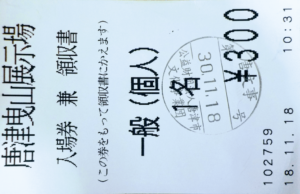 唐津曳山展示場
入場券 兼 領収書
(この券をもって領収書にかえます)
一般(個人)
1名
¥300
30.11.18
102759
18.11.18 10:31